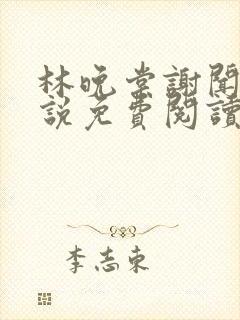 林晚棠謝聞
說免費閱讀
李志東